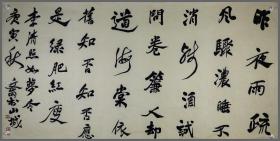 昨夜雨疏
風驟濃睡不
消殘酒試
問卷簾人却
道海棠依
舊知否知否應
是綠肥紅瘦
李清照如夢令
庚寅秋書山城